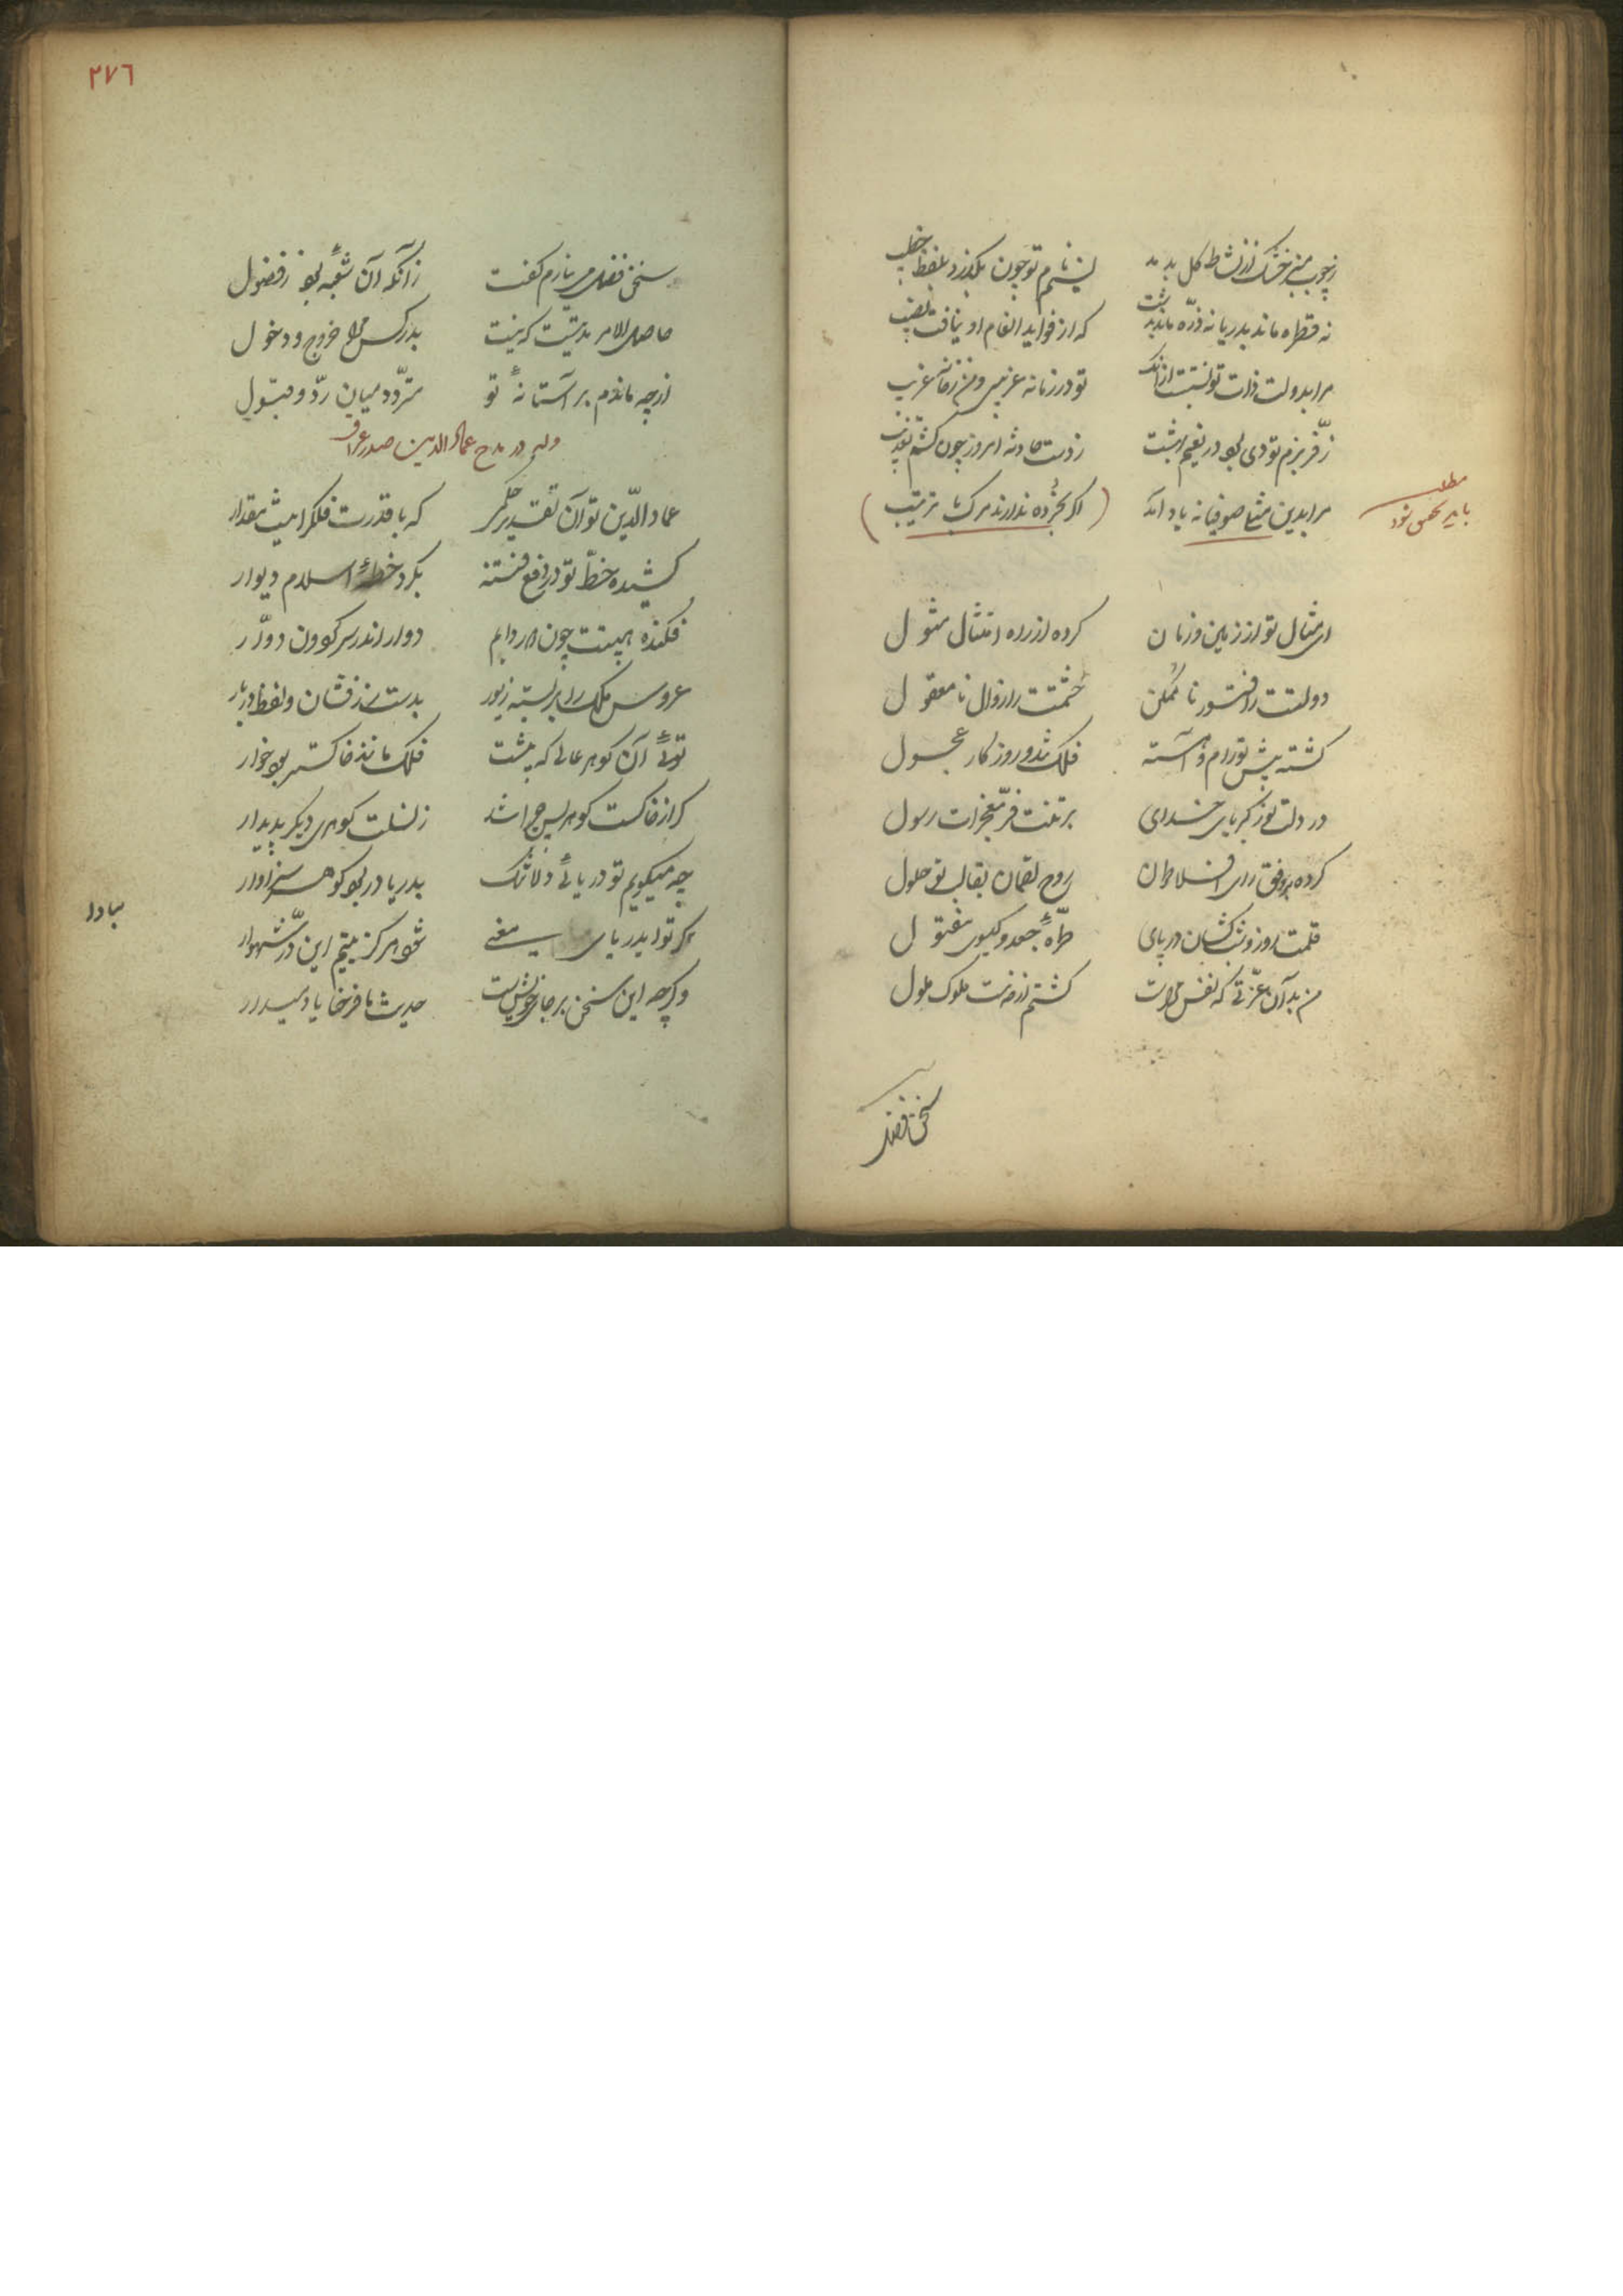 زچوب منبر خشک از نشاط گل بدمد    نسیم نام تو چون بگذرد بلفظ خطیب
نه قطره ماند بدریا نه ذره ماند بدشت    که از فواید انعام او نیافت نصیب
مرا بدولت ذات تو نسبتست ازانک    تو در زمانه غریبی و من زمانه غریب
ز فر بزم تو دی بود در نعیم بهشت    ز دست حادثه امروز چون کشم تعذیب
مرا بدین صوفیانه یاد آمد    اگر بخرده ندارند مرگ با ترتیب
مطلب
باید شود
ای مثال تو از زمین و زمان    کرده از راه امتثال مثول
دولتت را فتور ناممکن    حشمتت را زوال نامعقول
گشته پیش تو رام و آهسته    فلک تند و روزگار عجول
در دلت نور کبریای خدای    بر تنت فر معجزات رسول
کرده بر وفق رای افلاطون    روح لقمان بقالب تو حلول
قلمت روز و شب کشان در پای    طرّهٔ جعد و گیسوی مفتول
من بدان عزتی که نفس مراست    گشتم از خدمت ملوک ملول
سخن فضل
۲۷٦
سخن فضل می نیارم گفت    زانکه آن شعبهٔ بود ز فضول
حاصل الامر مدتیست که نیست    بدر کس مرا خروج و دخول
ازچه ماندم بر آستانهٔ تو    متردد میان رد و قبول
وله در مدح عماد الدین صدر عراق
عماد الدین تو آن تقدیر حکمی    که با قدرت فلک را نیست مقدار
کشیده خط تو در دفع فتنه    بگرد خطهٔ اسلام دیوار
فکنده هیبتت چون    دوار اندر سر گردون دوار
عروس ملک را بر بسته زیور    بدست زرفشان و لفظ دربار
توئی آن گوهر عالی که پیشت    فلک مانند خاکستر بود خوار
گر از خاکست گوهر پس چرا شد    ز نسلت گوهری دیگر پدیدار
چه میگویم تو دریائی و لا شک    بدریا در بود گوهر سزاوار
اگر تو ایدریای معنی    شود هرگز یتیم این در شهوار
وگرچه این سخن بر جای خویش است    حدیث کافر خایاد میدار
مبادا